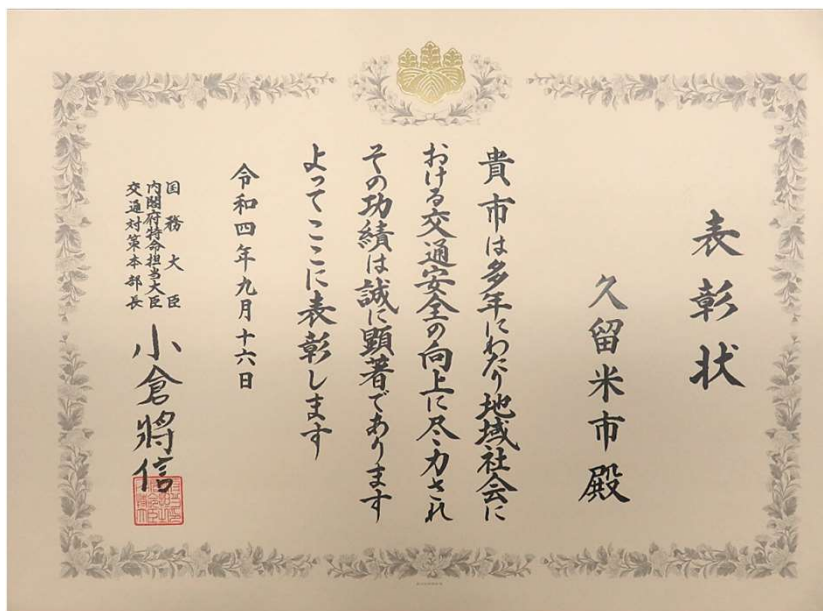 表彰状
久留米市殿
貴市は多年にわたり地域社会に
おける交通安全の向上に尽力され
その功績は誠に顕著であります
よってここに表彰します
令和四年九月十六日
国務大臣
内閣府特命担当大臣
交通対策本部長
小倉將信